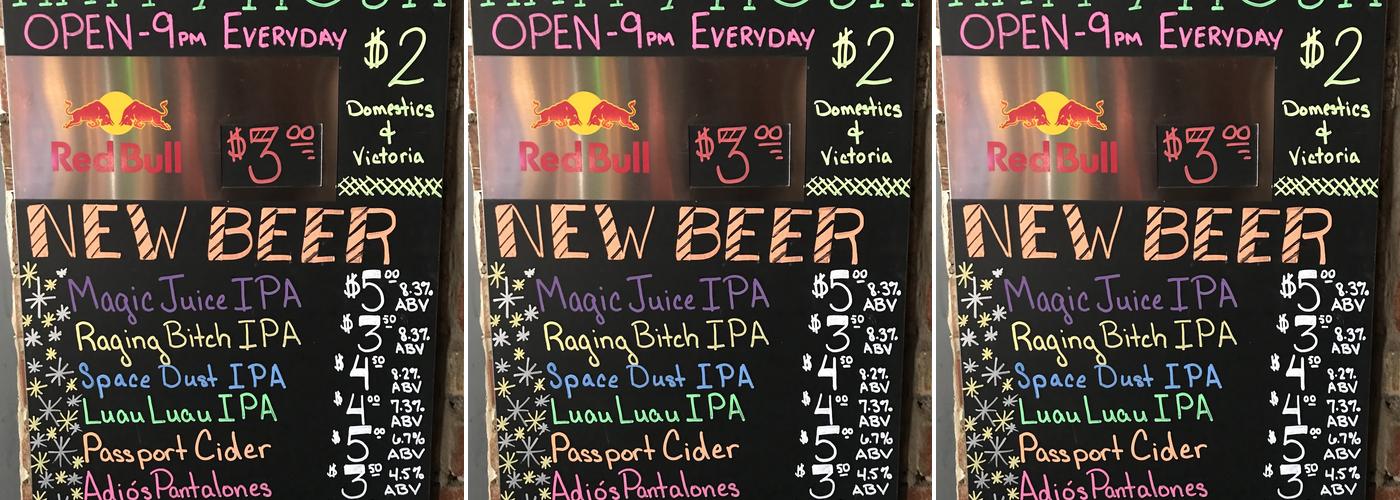 OPEN-9PM EVERYDAY
$2
Domestics
&
Victoria
Red Bull
$3.00
NEW BEER
Magic Juice IPA $5.00 8.3% ABV
Raging Bitch IPA $3.50 8.3% ABV
Space Dust IPA $4.50 8.2% ABV
Luau Luau IPA $4.00 7.3% ABV
Passport Cider $5.00 6.7% ABV
Adiós Pantalones $3.50 4.5% ABV
OPEN-9PM EVERYDAY
$2
Domestics
&
Victoria
Red Bull
$3.00
NEW BEER
Magic Juice IPA $5.00 8.3% ABV
Raging Bitch IPA $3.50 8.3% ABV
Space Dust IPA $4.50 8.2% ABV
Luau Luau IPA $4.00 7.3% ABV
Passport Cider $5.00 6.7% ABV
Adiós Pantalones $3.50 4.5% ABV
OPEN-9PM EVERYDAY
$2
Domestics
&
Victoria
Red Bull
$3.00
NEW BEER
Magic Juice IPA $5.00 8.3% ABV
Raging Bitch IPA $3.50 8.3% ABV
Space Dust IPA $4.50 8.2% ABV
Luau Luau IPA $4.00 7.3% ABV
Passport Cider $5.00 6.7% ABV
Adiós Pantalones $3.50 4.5% ABV